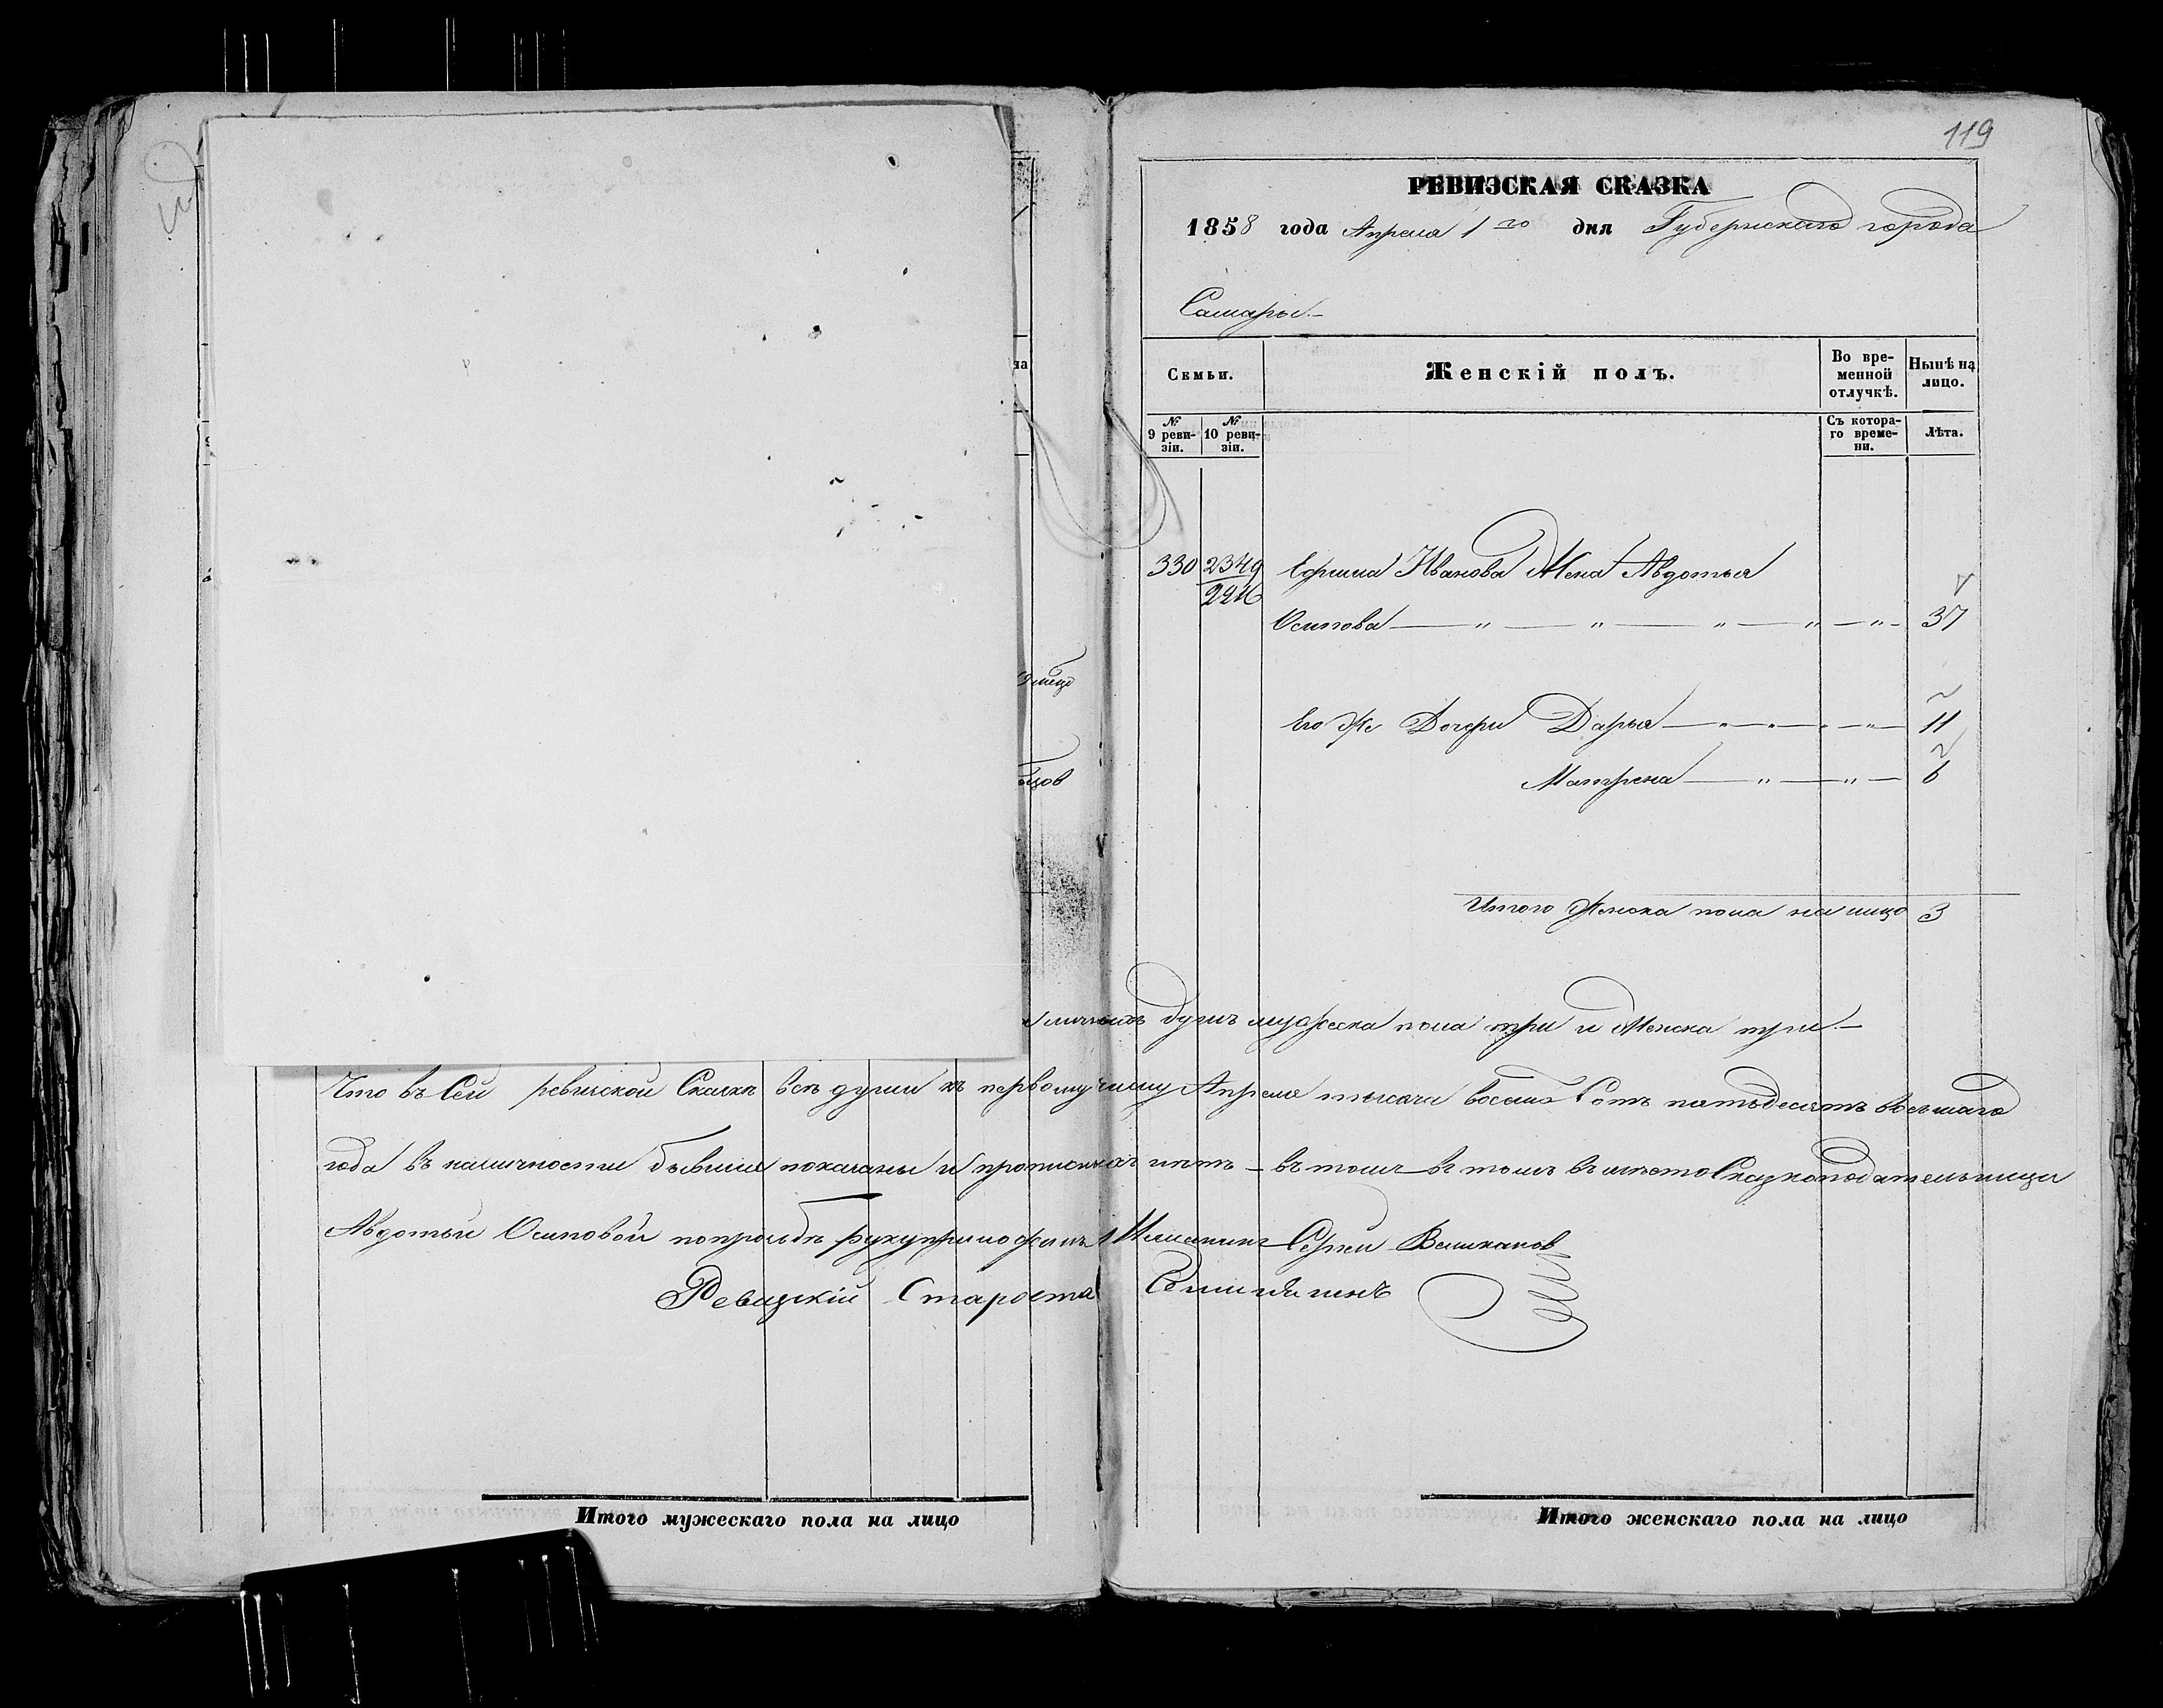 119
РЕВИЗСКАЯ СКАЗКА
1858 года Апреля 1го дня Губернскаго города
Самары.
Семьи.
Женскій полъ.
Во вре-
менной
отлучкѣ.
Нынѣ на
лицо.
№
9 реви-
зіи.
№
10 реви-
зіи.
Съ котора-
го време-
ни.
Лѣта.
330 2349 Ефима Иванова Жена Авдотья
Осипова 37
Его Же Дочери Дарья 11
Матрена 6
Итого Женска пола на лицо 3
душъ мужеска пола три и Женска три
Что въ Сей ревизской Сказкѣ всѣ души къ первому числу Апреля тысяча восемь Сотъ пятьдесятъ восьмаго
года въ наличности бывшия показаны и прописныхъ нѣтъ - въ томъ въ томъ въ мѣсто Сказкоподательницы
Авдотьи Осиповой по прозьбѣ руку приложилъ Мещанинъ Сергей Великанов
Ревизкій Староста
Итого мужескаго пола на лицо
Итого женскаго пола на лицо